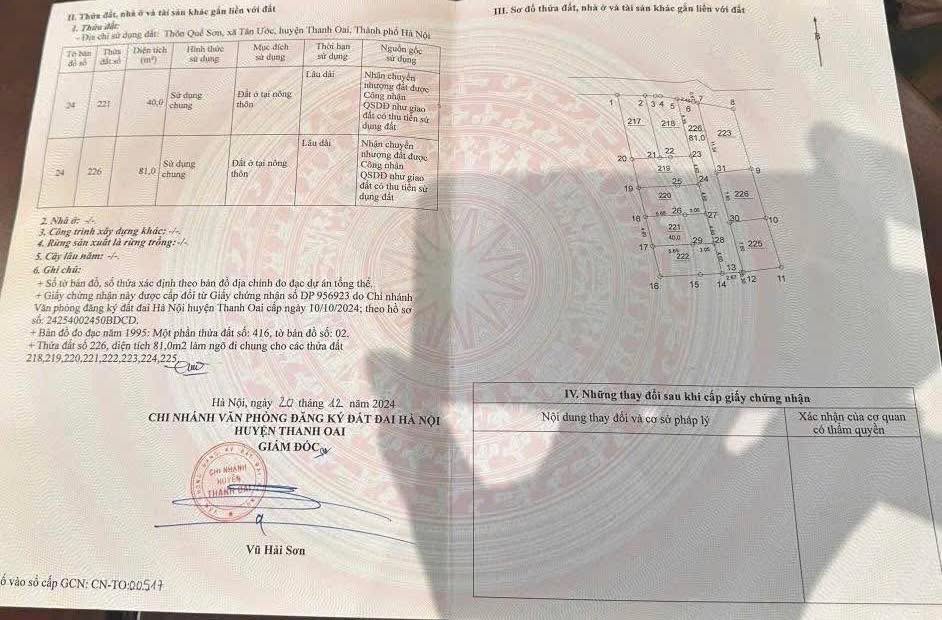 II. Thửa đất, nhà ở và tài sản khác gắn liền với đất
1. Thửa đất:
- Địa chỉ sử dụng đất: Thôn Quế Sơn, xã Tân Ước, huyện Thanh Oai, Thành phố Hà Nội
Tờ bản đồ số | Thửa đất số | Diện tích (m²) | Hình thức sử dụng | Mục đích sử dụng | Thời hạn sử dụng | Nguồn gốc sử dụng
24 | 221 | 40,0 | Sử dụng chung | Đất ở tại nông thôn | Lâu dài | Nhận chuyển nhượng đất được Công nhận QSDĐ như giao đất có thu tiền sử dụng đất
24 | 226 | 81,0 | Sử dụng chung | Đất ở tại nông thôn | Lâu dài | Nhận chuyển nhượng đất được Công nhận QSDĐ như giao đất có thu tiền sử dụng đất
2. Nhà ở: -/-.
3. Công trình xây dựng khác: -/-.
4. Rừng sản xuất là rừng trồng: -/-.
5. Cây lâu năm: -/-.
6. Ghi chú:
+ Số tờ bản đồ, số thửa xác định theo bản đồ địa chính đo đạc dự án tổng thể.
+ Giấy chứng nhận này được cấp đổi từ Giấy chứng nhận số DP 956923 do Chi nhánh
Văn phòng đăng ký đất đai Hà Nội huyện Thanh Oai cấp ngày 10/10/2024; theo hồ sơ
số: 24254002450BDCD.
+ Bản đồ đo đạc năm 1995: Một phần thửa đất số: 416, tờ bản đồ số: 02.
+ Thửa đất số 226, diện tích 81,0m2 làm ngõ đi chung cho các thửa đất
218,219,220,221,222,223,224,225
Hà Nội, ngày 20 tháng 12 năm 2024
CHI NHÁNH VĂN PHÒNG ĐĂNG KÝ ĐẤT ĐAI HÀ NỘI
HUYỆN THANH OAI
GIÁM ĐỐC
CHI NHÁNH
HUYỆN
THANH OAI
Vũ Hải Sơn
ố vào sổ cấp GCN: CN-TO:00517
III. Sơ đồ thửa đất, nhà ở và tài sản khác gắn liền với đất
B
1 2 3 4 5 6 7 8
217 218 226 223
81,0
20 21 22 23 31 9
219
19 25 24
220 226
18 26 27 30 10
221
40,0
17 29 28 225
222
16 15 14 13 12 11
IV. Những thay đổi sau khi cấp giấy chứng nhận
Nội dung thay đổi và cơ sở pháp lý | Xác nhận của cơ quan có thẩm quyền